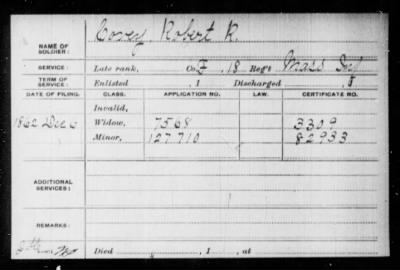 NAME OF SOLDIER: Corey Robert R.
SERVICE: Late rank, Co. E, 18 Reg't Mass Inf
TERM OF SERVICE: Enlisted , 1 Discharged , 1
DATE OF FILING. CLASS. APPLICATION NO. LAW. CERTIFICATE NO.
Invalid,
1862 Dec 6 Widow, 7568 3309
Minor, 127710 82933
ADDITIONAL SERVICES:
REMARKS:
Died , 1 , at